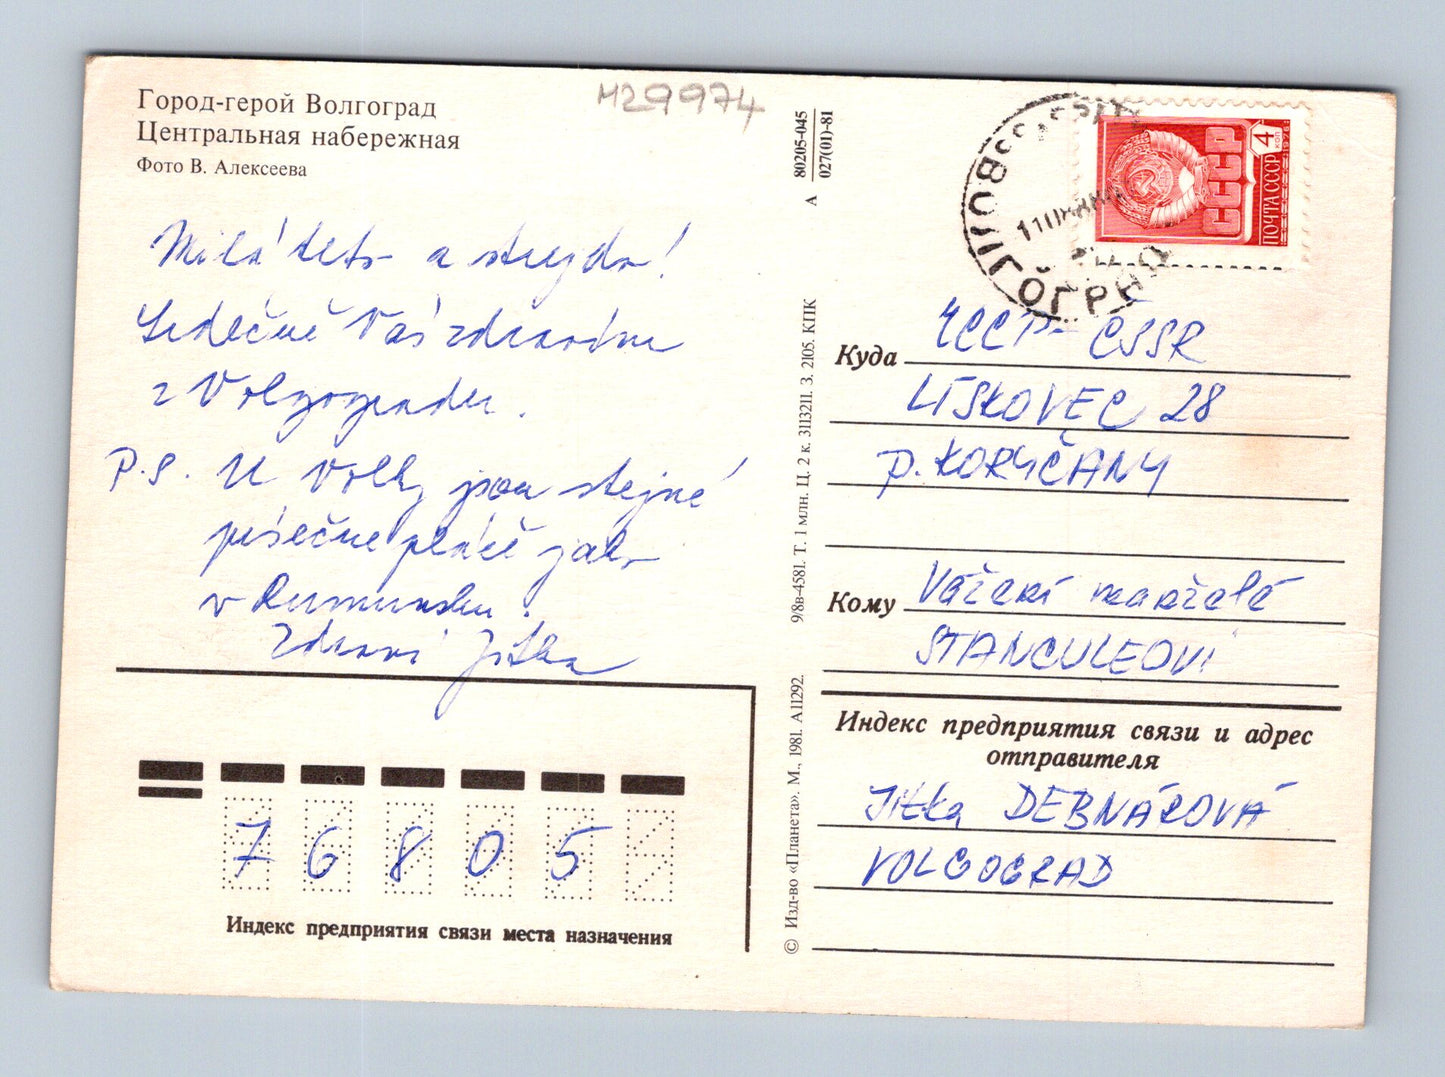 Город-герой Волгоград
Центральная набережная
Фото В. Алексеева
M29974
А 80205-045
027(01)-81
СССР
ПОЧТА СССР
4 коп
ВОЛГОГРАД
Milá teto a strejdo!
Srdečně Vás zdravím
z Volgogradu.
P.S. U Volhy jsou stejné
písečné pláže jako
v Rumunsku.
Zdraví Jitka
Куда ЧССР - ČSSR
LÍSKOVEC 28
p. KORYČANY
Кому Vážení manželé
STANCULEOVI
Индекс предприятия связи и адрес
отправителя
Jitka DEBNÁROVÁ
VOLGOGRAD
76805
Индекс предприятия связи места назначения
© Изд-во «Планета». М., 1981. А11292. 9/8в-4581. Т. 1 млн. Ц. 2 к. 3113211. З. 2105. КПК